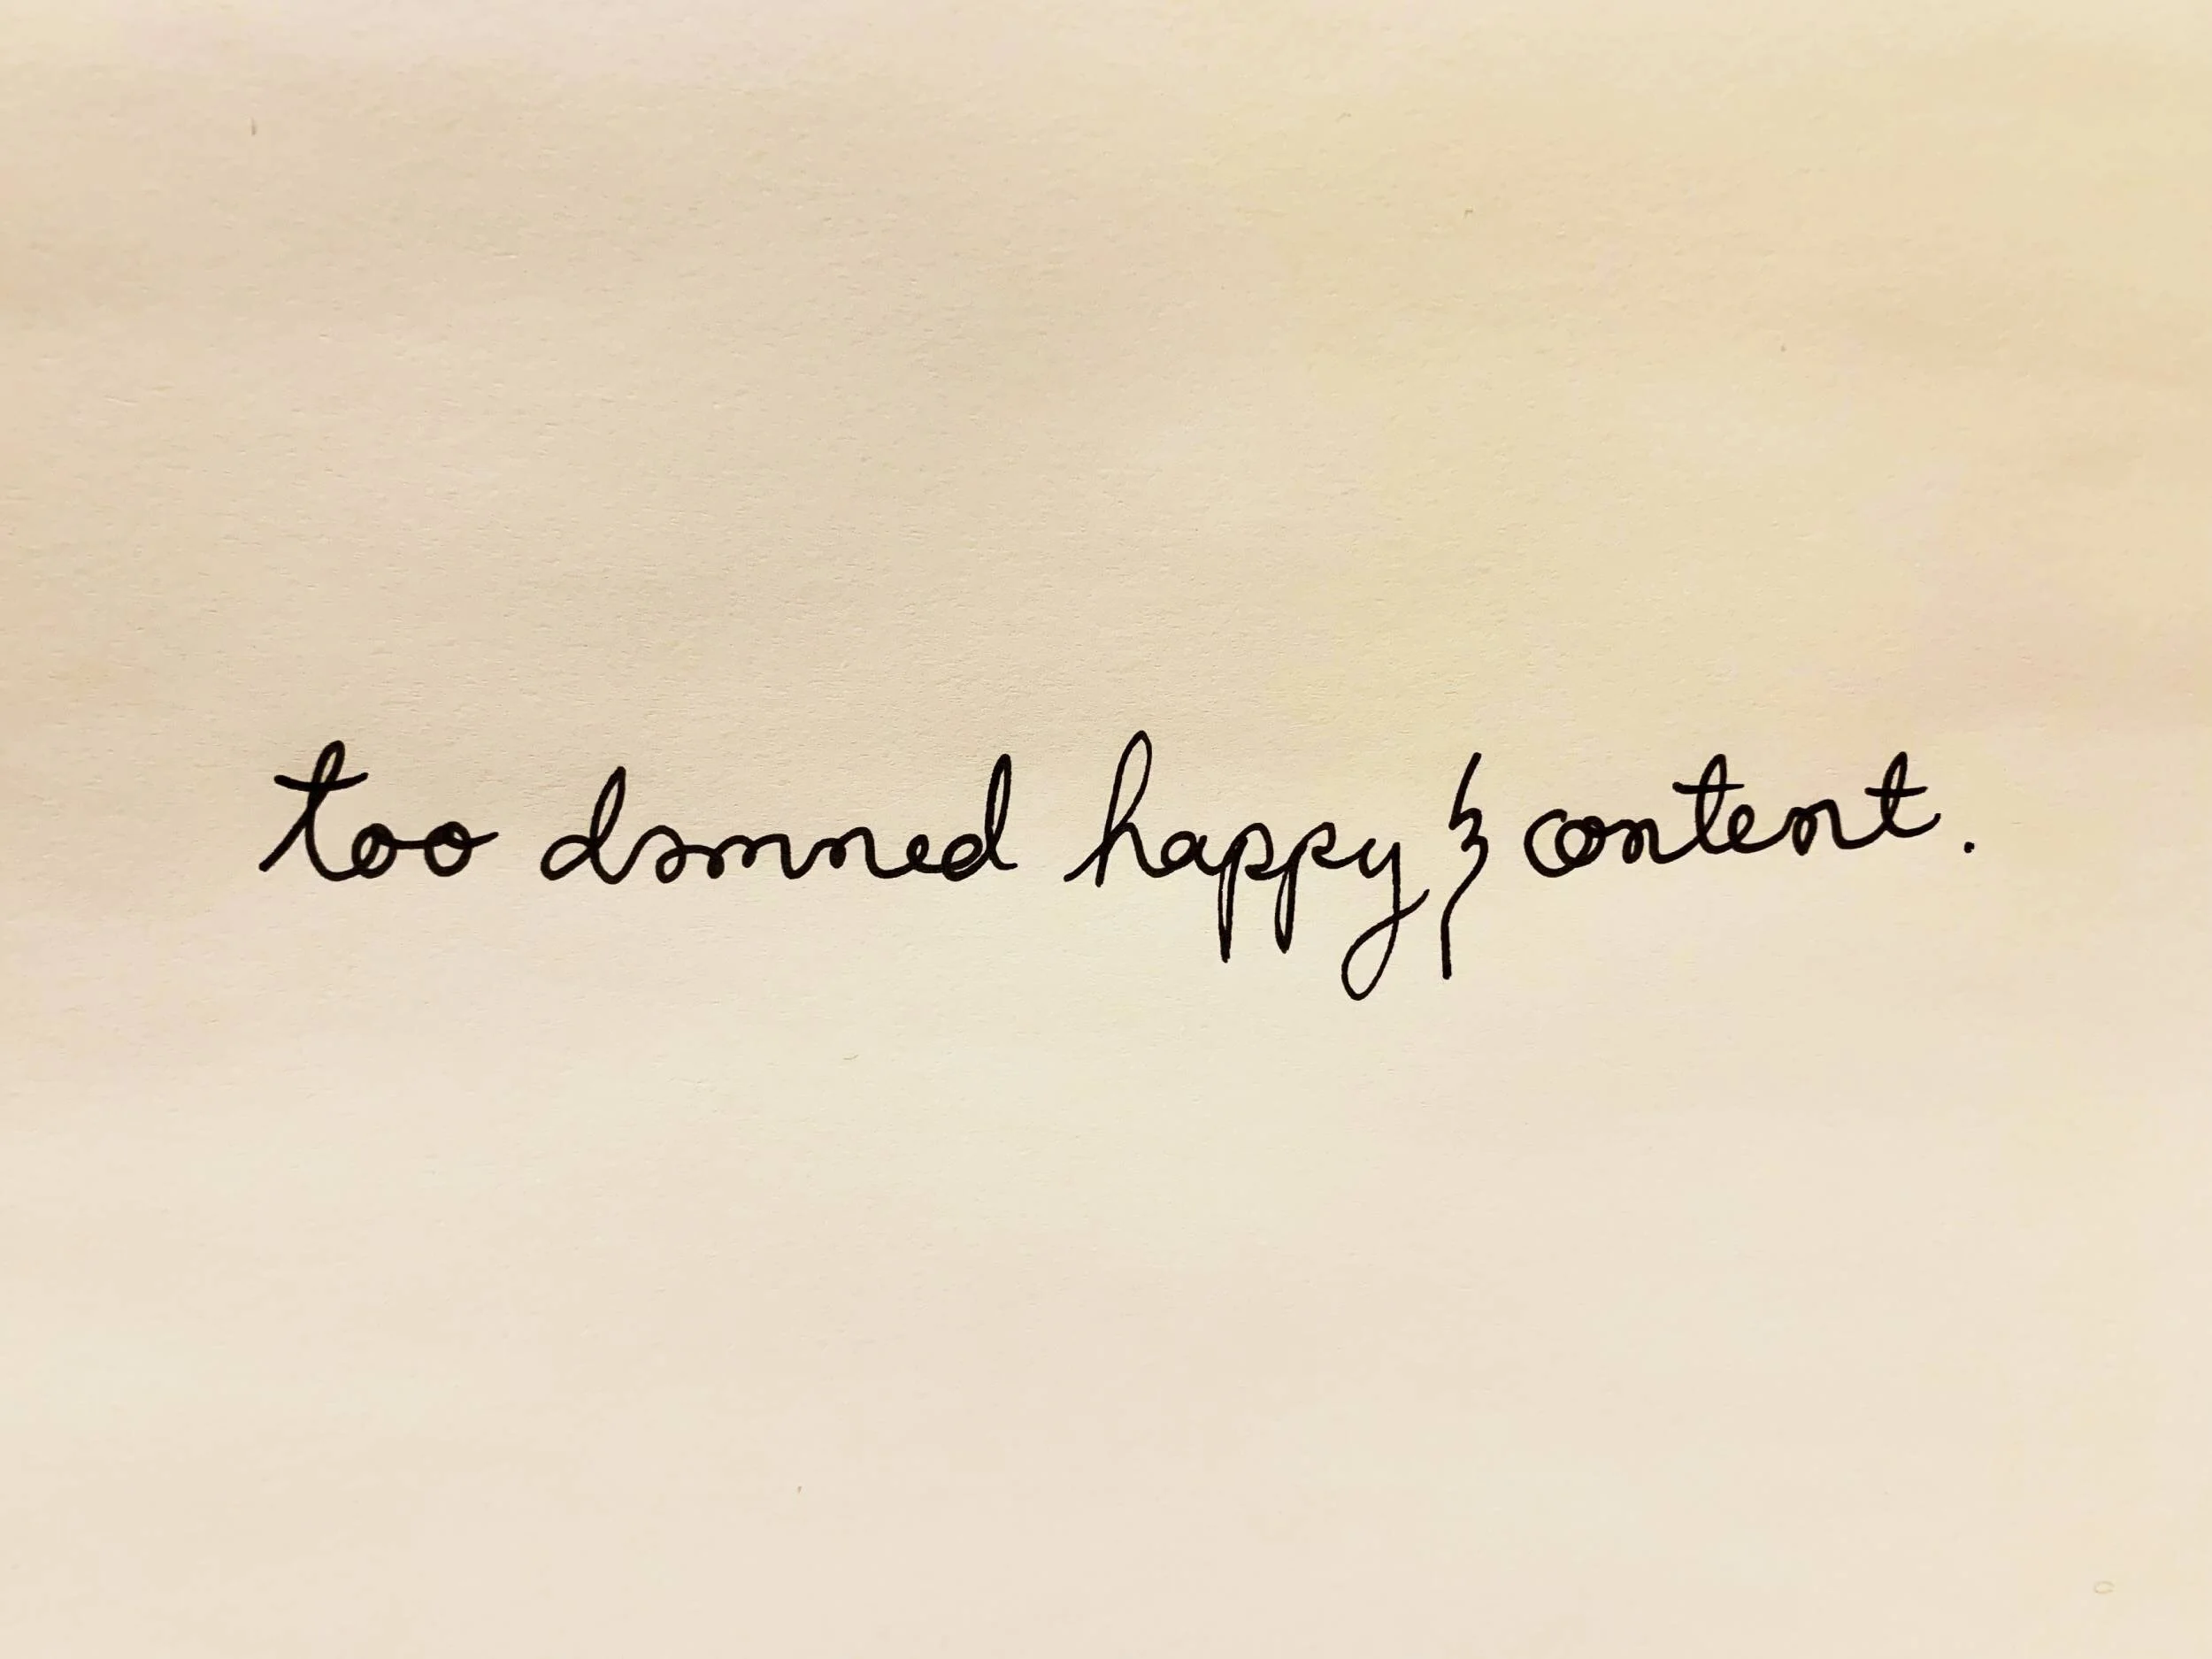 too damned happy & content.